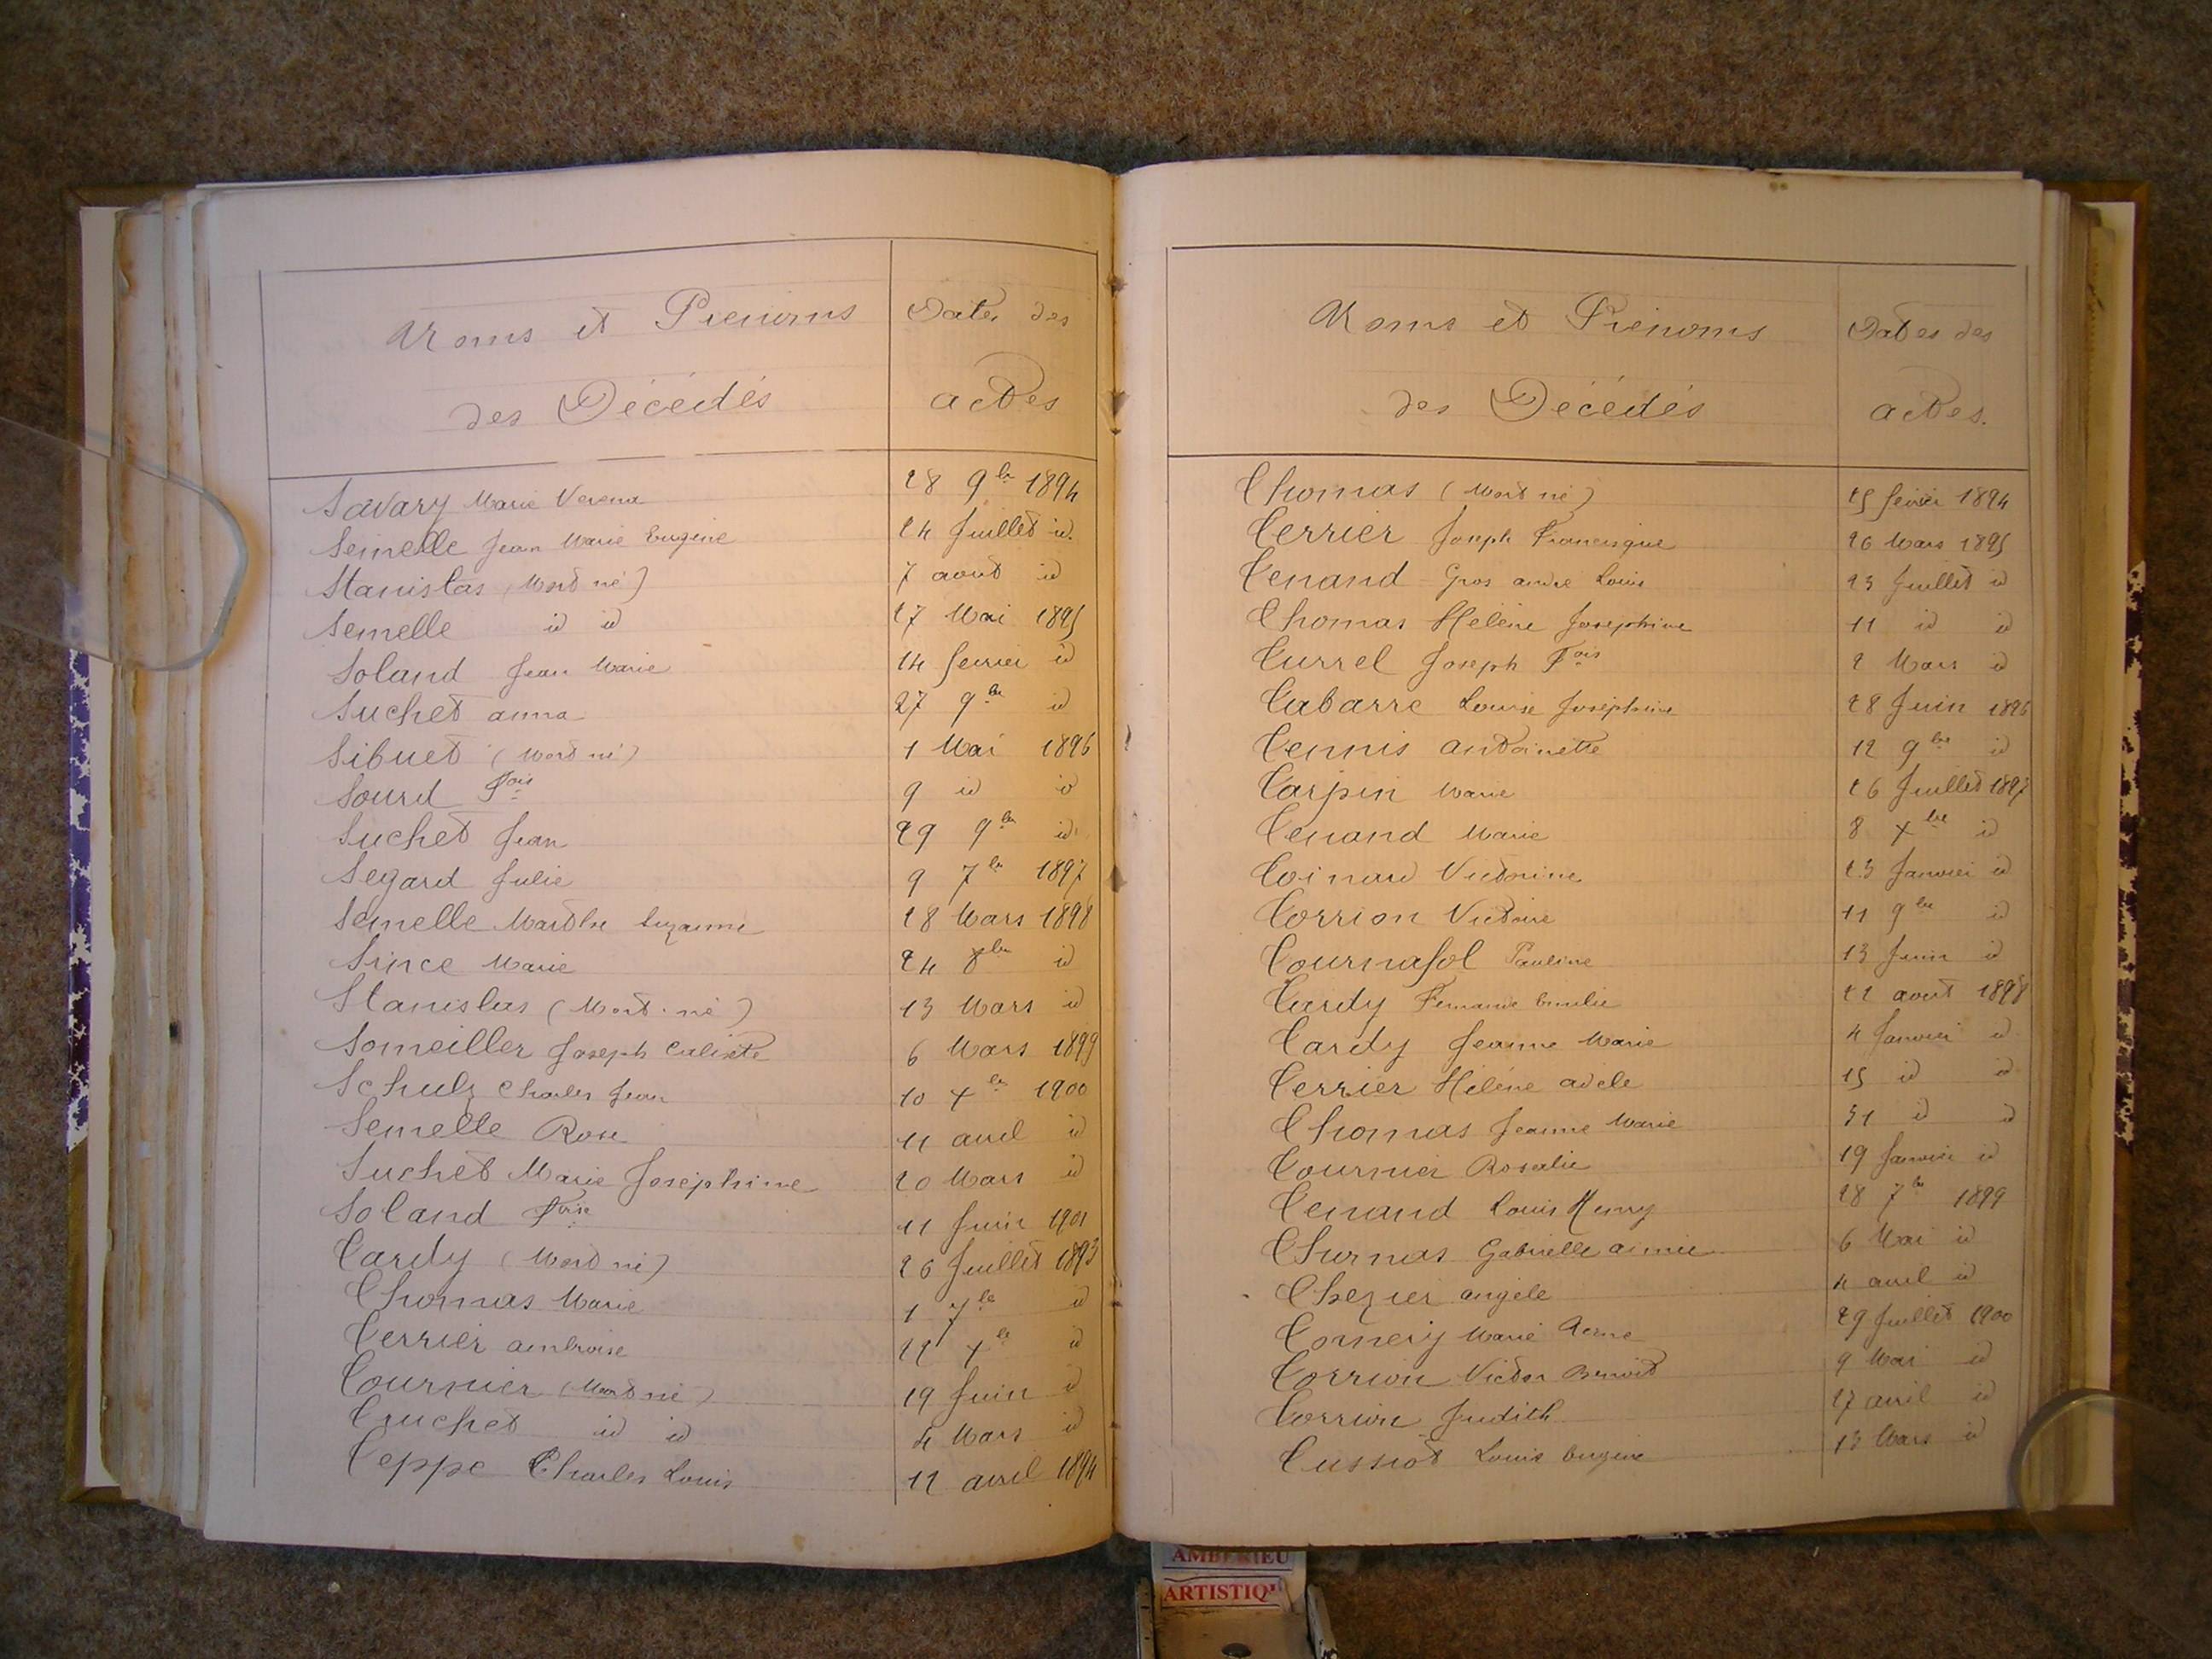 Noms et Prénoms
des Décédés
Dates des
actes
Savary Marie Verena 28 9bre 1894
Semelle Jean Marie Eugène 24 Juillet id.
Stanislas (Mort né) 7 aout id
Semelle id id 27 Mai 1895
Soland Jean Marie 14 fevrier id
Suchet anna 27 9bre id
Sibuet (Mort né) 1 Mai 1896
Sourd Fois 9 id id
Suchet Jean 29 9bre id
Segard Julie 9 7bre 1897
Semelle Marthe Suzanne 28 Mars 1898
Since Marie 24 8bre id
Stanislas (Mort-né) 13 Mars id
Someiller Joseph Calixte 6 Mars 1899
Schulz Charles Jean 10 Xbre 1900
Semelle Rose 11 avril id
Suchet Marie Joséphine 20 Mars id
Soland Foise 11 Juin 1901
Tardy (Mort né) 26 Juillet 1893
Thomas Marie 1 7bre id
Terrier ambroise 22 Xbre id
Tournier (Mort né) 19 Juin id
Truchet id id 4 Mars id
Teppe Charles Louis 12 avril 1894
Noms et Prénoms
des Décédés
Dates des
actes.
Thomas (Mort né) 25 fevrier 1894
Terrier Joseph Francisque 26 Mars 1895
Tenand Gros andré Louis 23 Juillet id
Thomas Hélène Josephine 11 id id
Turrel Joseph Fois 2 Mars id
Tabarre Louise Joséphine 28 Juin 1896
Tennis antoinette 12 9bre id
Tarpin Marie 26 Juillet 1897
Tenand Marie 8 Xbre id
Toinard Victorine 23 Janvier id
Torrion Victoire 11 9bre id
Tournafol Pauline 13 Juin id
Tardy Fernande Emilie 21 aout 1898
Tardy Jeanne Marie 4 Janvier id
Terrier Hélène adèle 15 id id
Thomas Jeanne Marie 31 id id
Tournier Rosalie 19 Janvier id
Tenand Louis Henry 28 7bre 1899
Gabrielle aimée 6 Mai id
Thezier angèle 4 avril id
Tornery Marie 29 Juillet 1900
Torrion Victor Benoit 9 Mai id
Torrion Judith 27 avril id
Tussiot Louis Eugène 13 Mars id
AMBERIEU
ARTISTIQ